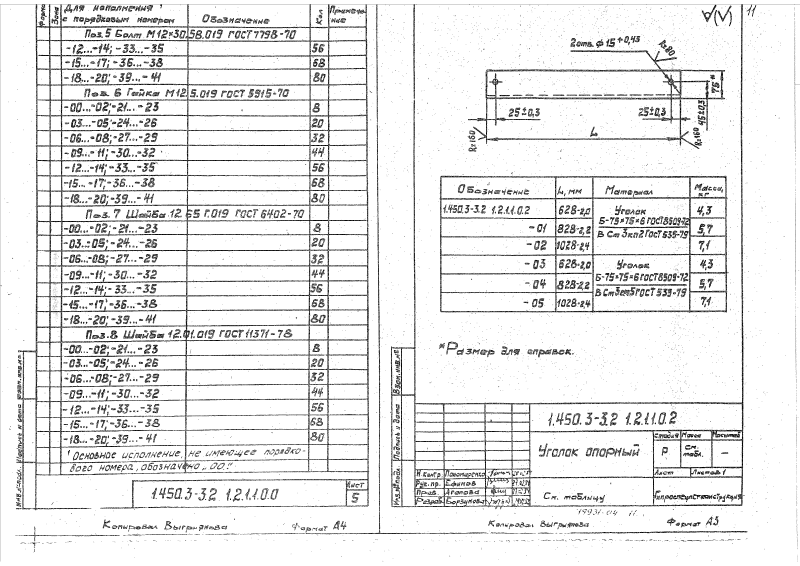 Для исполнения¹ с порядковым номером
Обозначение
Кол
Примеча-
ние
Форма
Зона
Поз.5 Болт М12×30.58.019 ГОСТ 7798-70
-12...-14;-33...-35 56
-15...-17;-36...-38 68
-18...-20;-39...-41 80
Поз. 6 Гайка М12.5.019 ГОСТ 5915-70
-00...-02;-21...-23 8
-03...-05;-24...-26 20
-06...-08;-27...-29 32
-09...-11;-30...-32 44
-12...-14;-33...-35 56
-15...-17;-36...-38 68
-18...-20;-39...-41 80
Поз. 7 Шайба 12.65Г.019 ГОСТ 6402-70
-00...-02;-21...-23 8
-03...-05;-24...-26 20
-06...-08;-27...-29 32
-09...-11;-30...-32 44
-12...-14;-33...-35 56
-15...-17;-36...-38 68
-18...-20;-39...-41 80
Поз.8 Шайба 12.01.019 ГОСТ 11371-78
-00...-02;-21...-23 8
-03...-05;-24...-26 20
-06...-08;-27...-29 32
-09...-11;-30...-32 44
-12...-14;-33...-35 56
-15...-17;-36...-38 68
-18...-20;-39...-41 80
¹ Основное исполнение, не имеющее порядко-
вого номера, обозначено „00"
1.450.3-3.2 1.2.1.1.0.0
Лист
5
Копировал Выгриянова Формат А4
11
2отв. ф15+0,43
Rz80
75*
45±0,3
25±0,3
25±0,3
L
Rz160
Rz160
Обозначение L, мм Материал Масса, кг
1.450.3-3.2 1.2.1.1.0.2 628-2,0 Уголок 4,3
Б-75×75×6 ГОСТ 8509-72
-01 828-2,2 5,7
ВСт3кп2 ГОСТ 535-79
-02 1028-2,4 7,1
-03 628-2,0 Уголок 4,3
Б-75×75×6 ГОСТ 8509-72
-04 828-2,2 5,7
ВСт3сп5 ГОСТ 535-79
-05 1028-2,4 7,1
*Размер для справок.
Взам.инв.№
Подпись и дата
1.450.3-3.2 1.2.1.1.0.2
Уголок опорный
Стадия Масса Масштаб
Р См. табл. —
Лист Листов 1
Н.контр. Пономаренко
Рук.пр. Ефимов
Пров. Агапова
Разраб. Борзунова
См. таблицу
Копировал Выгриянова Формат А3